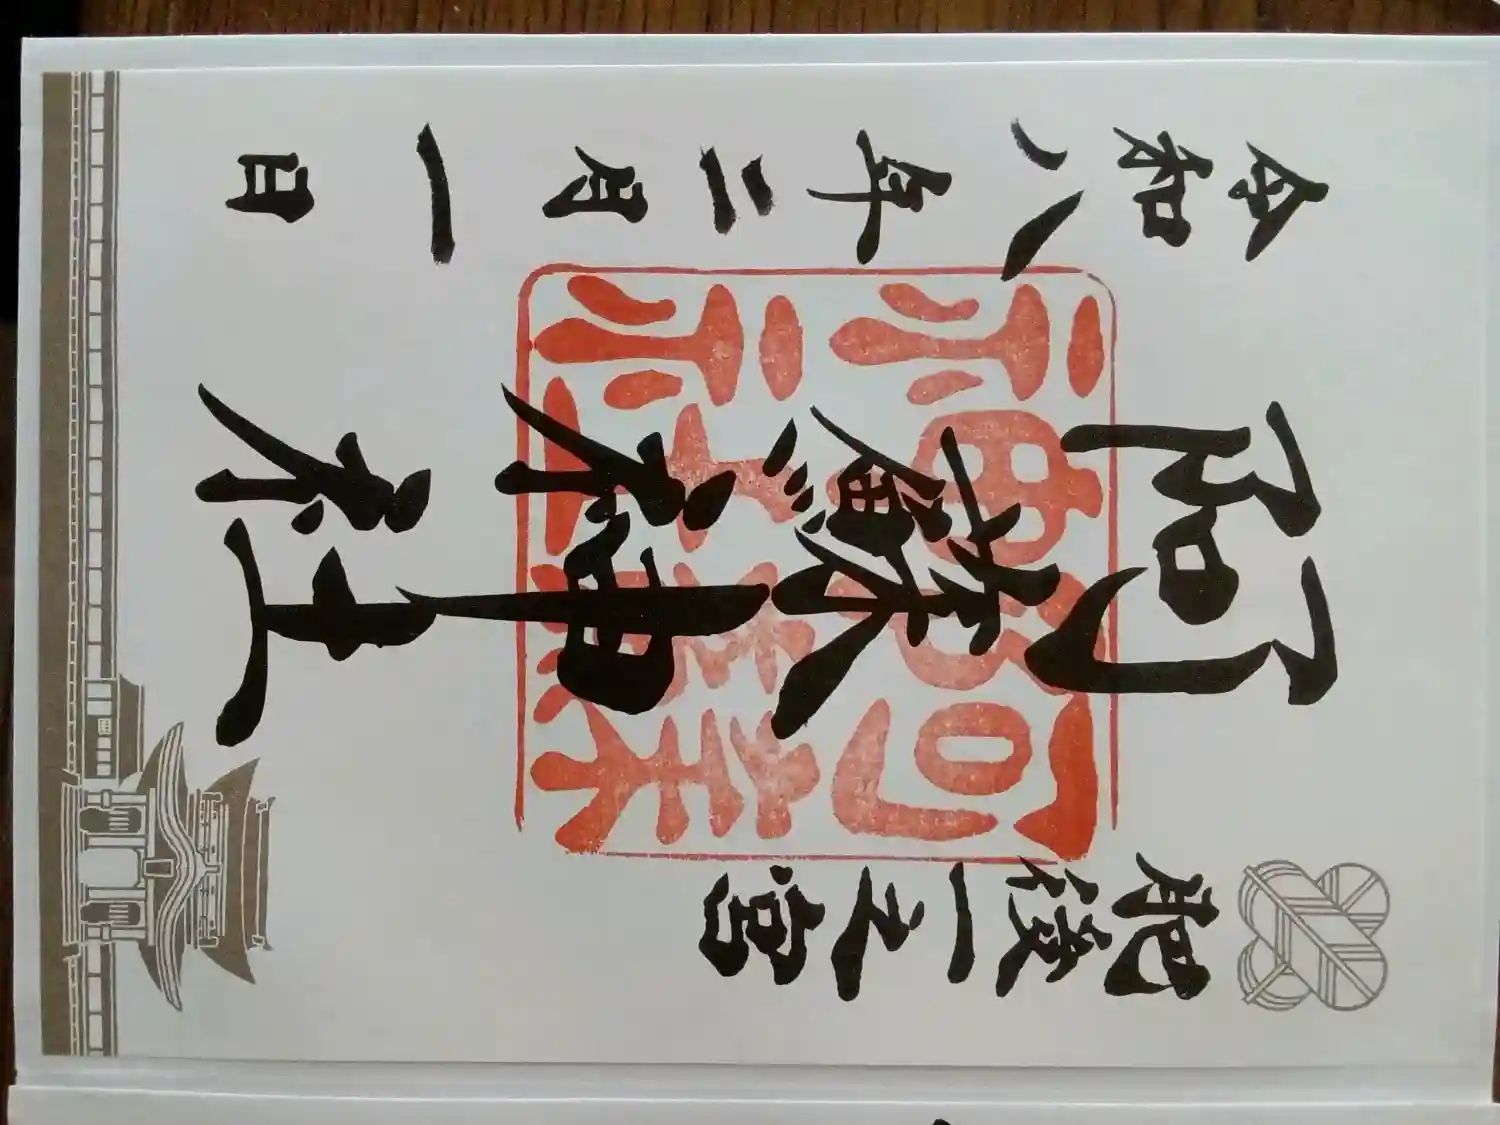 肥後一之宮
阿蘇神社
令和八年二月一日
阿蘇
神社